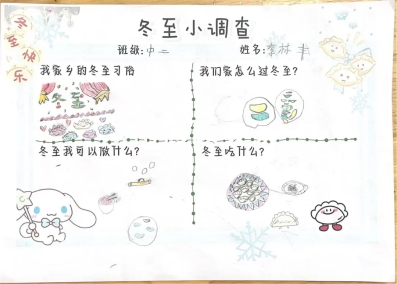 冬至小调查
班级:中二
姓名:李林丰
冬至快乐
我家乡的冬至习俗
我们家怎么过冬至?
冬至
冬至我可以做什么?
冬至吃什么?